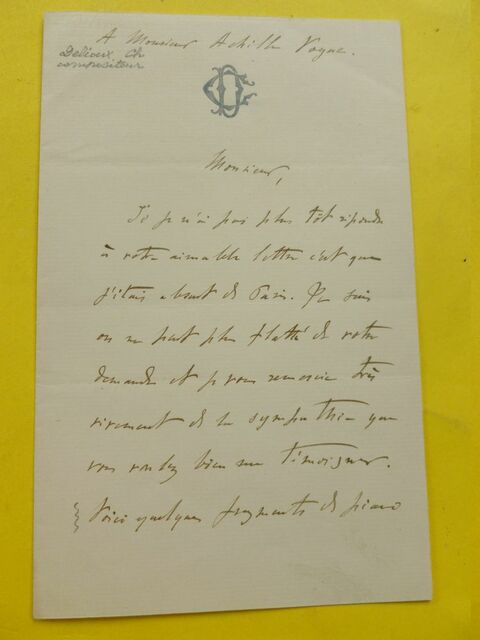 A Monsieur Achille Vogue.
Delioux Ch
compositeur
DC
Monsieur,
Si je n'ai pas plus tôt répondu
à votre aimable lettre c'est que
j'étais absent de Paris. Je suis
on ne peut plus flatté de votre
demande et je vous remercie très
vivement de la sympathie que
vous voulez bien me témoigner.
Voici quelques fragments de piano